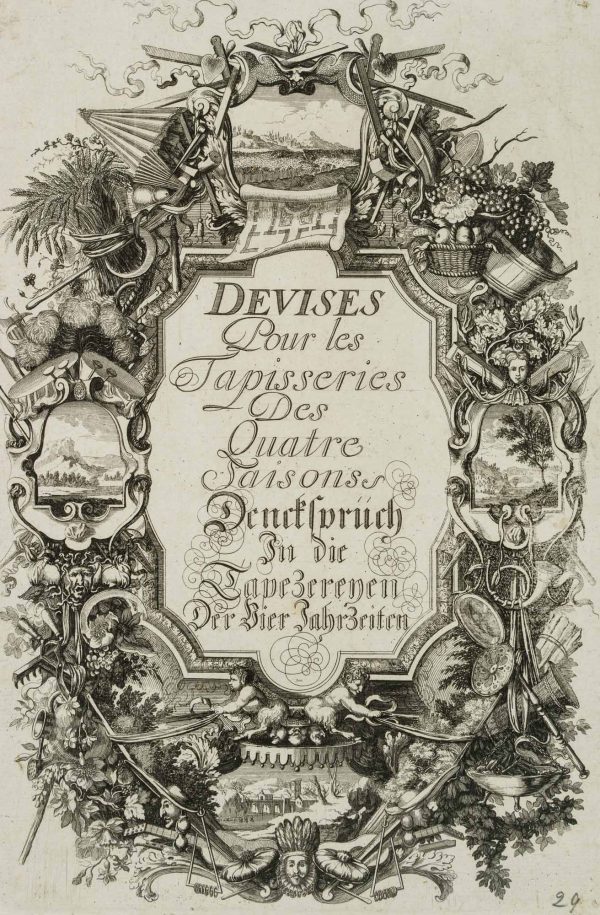 DEVISES
Pour les
Tapisseries
Des
Quatre
Saisons.
Denckſprüch
In die
Tapezereyen
Der Vier Jahrzeiten
29